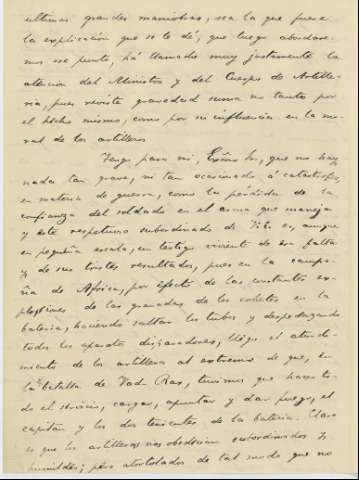 ultimas grandes maniobras, sea la que fuere
la explicación que se le dé, que luego abordare-
mos ese punto, há llamado muy justamente la
atención del Ministro y del Cuerpo de Artille-
ría, pues reviste gravedad suma no tanto por
el hecho mismo, como por su influencia en la mo-
ral de los artilleros
Tengo para mi, Exmo Sr, que no hay
nada tan grave, ni tan ocasionado á catastrofes,
en materia de guerra, como la pérdida de la
confianza del soldado en el arma que maneja
y este respetuoso subordinado de V.E. es, aunque
en pequeña escala, un testigo viviente de esa falta
y de sus tristes resultados, pues en la campa-
ña de Africa, por efecto de las constantes ex-
plosiones de las granadas de los cohetes en la
bateria, haciendo saltar los tubos y despedazando
todos los aparatos disparadores, llegó el aturdi-
miento de los artilleros al extremo de que, en
la batalla de Vad-Ras, tuvimos que hacer to-
do el servicio, cargar, apuntar y dar fuego, el
capitán y los dos tenientes de la bateria. Claro
es que los artilleros nos obedecian subordinados y
humildes; pero atortolados de tal modo que no